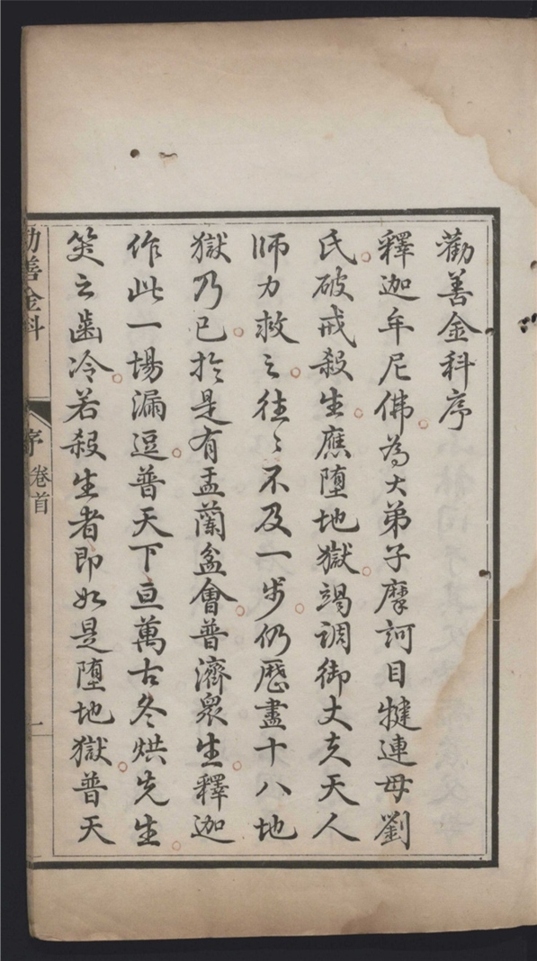 勸善金科序
釋迦牟尼佛為大弟子摩訶目犍連母劉
氏破戒殺生應墮地獄竭調御丈夫天人
師力救之往〻不及一步仍歷盡十八地
獄乃已於是有盂蘭盆會普濟衆生釋迦
作此一場漏逗普天下亘萬古冬烘先生
笑之齒冷若殺生者即如是墮地獄普天
勸善金科
序
卷首
一